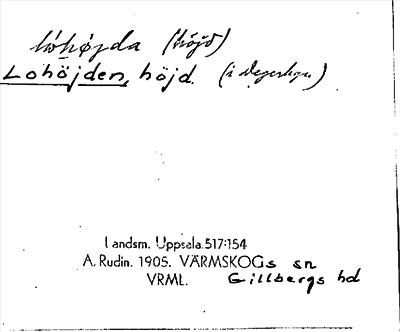 lòhø̀jda (höjd)
Lohöjden, höjd. (i Degerbyn)
Landsm. Uppsala 517:154
A. Rudin. 1905. VÄRMSKOGs sn
VRML. Gillbergs hd